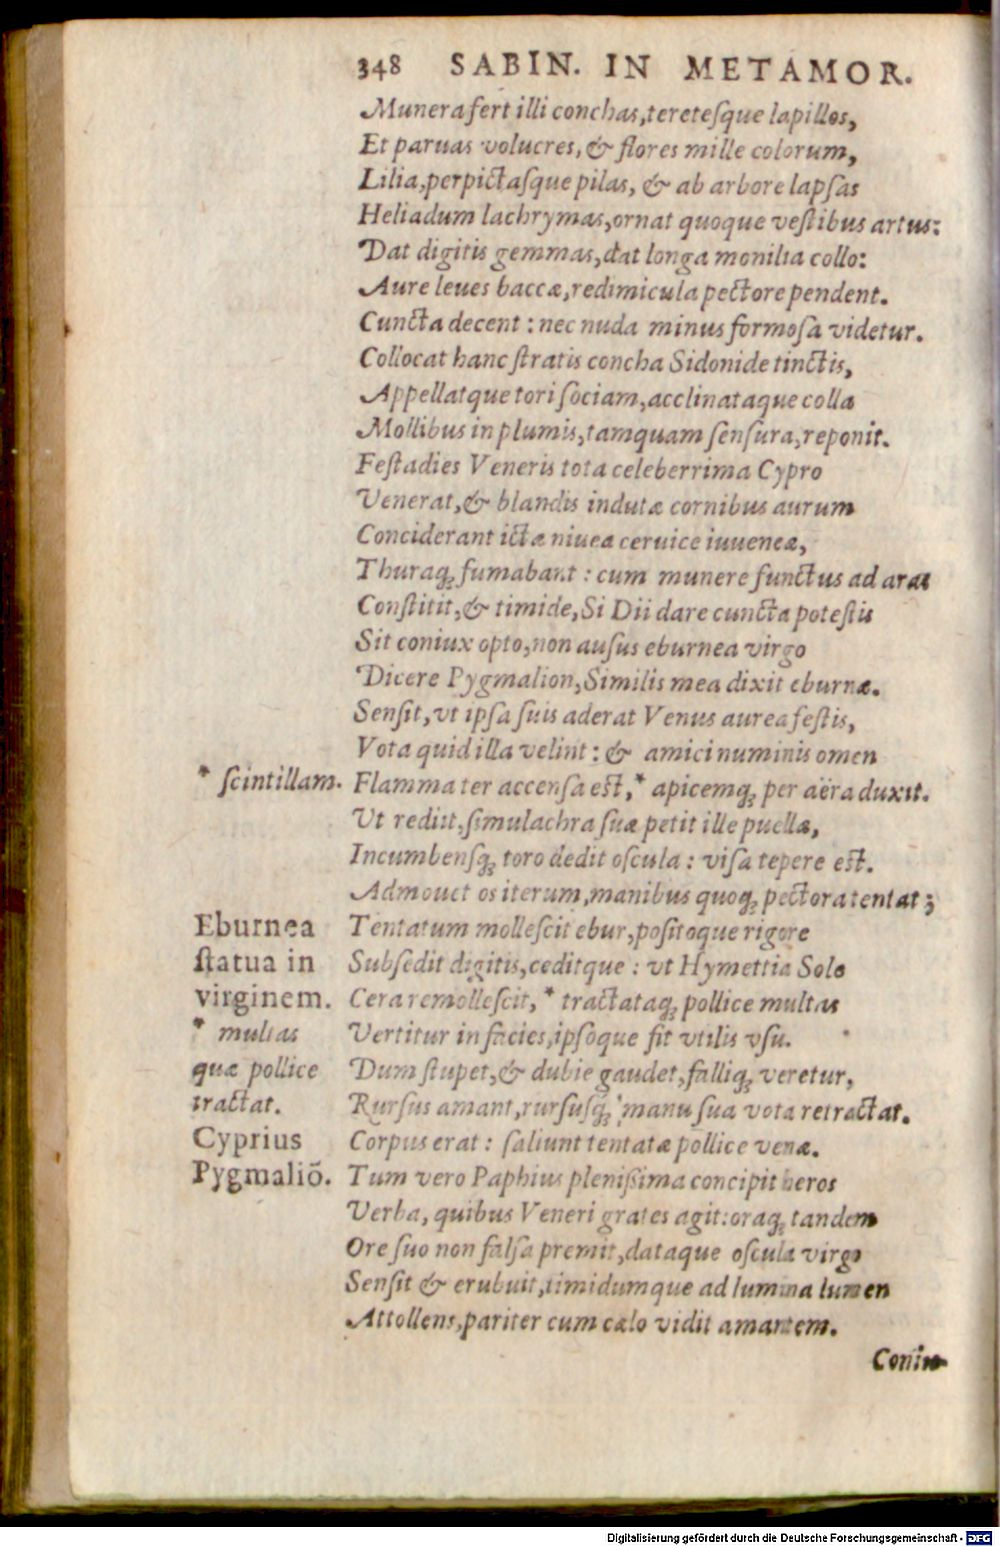 348 SABIN. IN METAMOR.
Munera fert illi conchas, teretesque lapillos,
Et paruas volucres, & flores mille colorum,
Lilia, perpictasque pilas, & ab arbore lapsas
Heliadum lachrymas, ornat quoque vestibus artus:
Dat digitis gemmas, dat longa monilia collo:
Aure leues baccæ, redimicula pectore pendent.
Cuncta decent: nec nuda minus formosa videtur.
Collocat hanc stratis concha Sidonide tinctis,
Appellatque tori sociam, acclinataque colla
Mollibus in plumis, tamquam sensura, reponit.
Festa dies Veneris tota celeberrima Cypro
Venerat, & blandis indutæ cornibus aurum
Conciderant ictæ niuea ceruice iuuencæ,
Thuraq; fumabant: cum munere functus ad aras
Constitit, & timide, Si Dii dare cuncta potestis
Sit coniux opto, non ausus eburnea virgo
Dicere Pygmalion, Similis mea dixit eburnæ.
Sensit, vt ipsa suis aderat Venus aurea festis,
Vota quid illa velint: & amici numinis omen
* scintillam. Flamma ter accensa est, * apicemq; per aëra duxit.
Ut rediit, simulachra suæ petit ille puellæ,
Incumbensq; toro dedit oscula: visa tepere est.
Admouet os iterum, manibus quoq; pectora tentat;
Eburnea Tentatum mollescit ebur, positoque rigore
statua in Subsedit digitis, ceditque: vt Hymettia Sole
virginem. Cera remollescit, * tractataq; pollice multas
* multas Vertitur in facies, ipsoque fit vtilis vsu.
quæ pollice Dum stupet, & dubie gaudet, falliq; veretur,
tractat. Rursus amant, rursusq; manu sua vota retractat.
Cyprius Corpus erat: saliunt tentatæ pollice venæ.
Pygmaliõ. Tum vero Paphius plenißima concipit heros
Verba, quibus Veneri grates agit: oraq; tandem
Ore suo non falsa premit, dataque oscula virgo
Sensit & erubuit, timidumque ad lumina lumen
Attollens, pariter cum cælo vidit amantem.
Coniu-
Digitalisierung gefördert durch die Deutsche Forschungsgemeinschaft - DFG